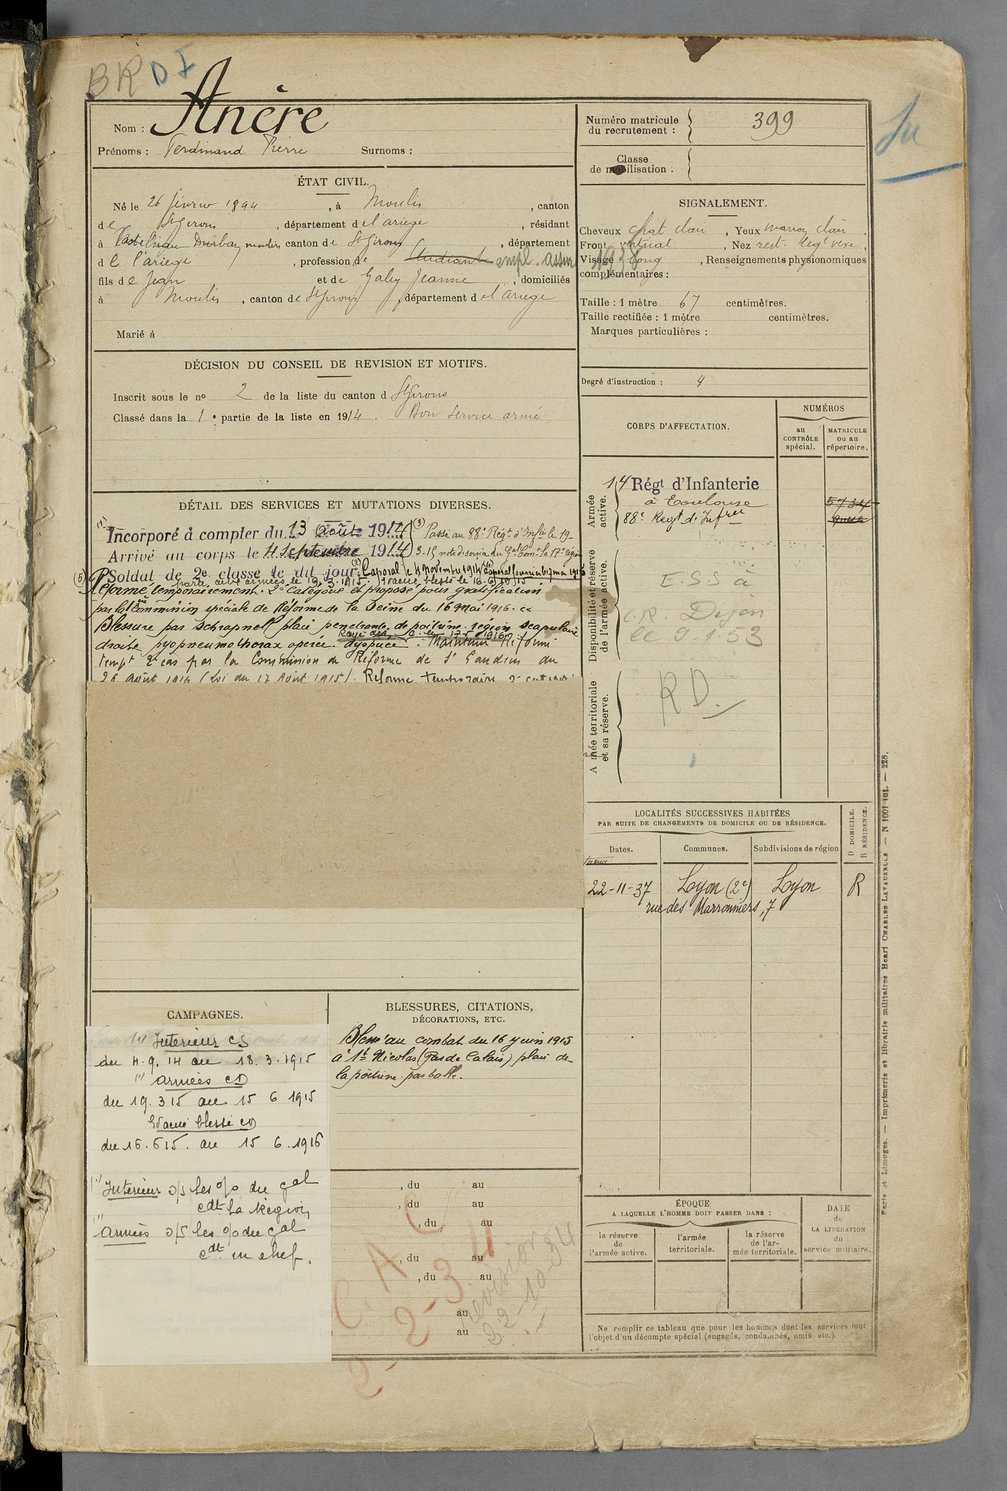 BR DI
Nom : Anère
Prénoms : Ferdinand Pierre Surnoms :
Numéro matricule du recrutement : 399
Classe de mobilisation :
ÉTAT CIVIL.
Né le 26 février 1894, à Moulis, canton
de St Girons, département de l'ariège, résidant
à Castelnau Durban moulis canton de St Girons, département
de l'ariège, profession de étudiant empl. assur
fils de Jean et de Galey Jeanne, domiciliés
à Moulis, canton de St Girons, département de l'ariège
Marié à
SIGNALEMENT.
Cheveux chat clair, Yeux marron clair,
Front vertical, Nez rect.
Visage long, Renseignements physionomiques
complémentaires :
Taille : 1 mètre 67 centimètres.
Taille rectifiée : 1 mètre centimètres.
Marques particulières :
Degré d'instruction : 4
DÉCISION DU CONSEIL DE REVISION ET MOTIFS.
Inscrit sous le no 2 de la liste du canton d St Girons
Classé dans la 1e partie de la liste en 1914. Bon service armé
DÉTAIL DES SERVICES ET MUTATIONS DIVERSES.
Incorporé à compter du 13 août 1914
Arrivé au corps le 4 Septembre 1914
Soldat de 2e classe le dit jour. Caporal le 4 Novembre 1914
Passé au 88e Régt d'Infie le 19-
3-15
Parti aux armées le 19.3.1915. Evacué blessé le 16.6.1915.
Réforme temporairement 2e Catégorie et proposé pour gratification
par la Commission spéciale de Réforme de la Seine du 16 mai 1916.
Blessure par schrapnel plaie penetrante de poitrine region scapulaire
droite pyopneumothorax opérée. dyspnée. Maintenu Réformé
tempre 2e cat par la Commission de Réforme de St Gaudens du
26 Août 1916 (Loi du 17 Août 1915). Réforme temporaire 2e catégorie
CORPS D'AFFECTATION.
NUMÉROS
au CONTRÔLE spécial.
MATRICULE ou au répertoire.
Armée active.
14 Régt d'Infanterie
à Toulouse
88e Regt d'Infrie
5734
Disponibilité et réserve de l'armée active.
E.S.S à
C.R. Dijon
le 9.1.53
Armée territoriale et sa réserve.
RD.
LOCALITÉS SUCCESSIVES HABITÉES
PAR SUITE DE CHANGEMENTS DE DOMICILE OU DE RÉSIDENCE.
Dates. Communes. Subdivisions de région
D DOMICILE.
R RÉSIDENCE.
22-11-37 Lyon (2e) Lyon R
rue des Marronniers, 7
CAMPAGNES.
Intérieur CS
du 4.9.14 au 18.3.1915
armées CD
du 19.3 15 au 15 6 1915
Evacué blessé CD
du 16.6 15. au 15 6.1916
Intérieur o/s les o/o du gal
cdt la Région
armées o/s les o/o du gal
cdt en chef.
BLESSURES, CITATIONS,
DÉCORATIONS, ETC.
Blessé au combat du 16 juin 1915
à St Nicolas (Pas de Calais) plaie de
la poitrine par balle.
, du au
, du au
, du au
, du au
, du au
au
au
ÉPOQUE
A LAQUELLE L'HOMME DOIT PASSER DANS :
la réserve de l'armée active.
l'armée territoriale.
la réserve de l'armée territoriale.
DATE de LA LIBÉRATION du service militaire.
Ne remplir ce tableau que pour les hommes dont les services font
l'objet d'un décompte spécial (engagés, condamnés, omis, etc.)
Paris et Limoges. — Imprimerie et librairie militaires Henri CHARLES-LAVAUZELLE